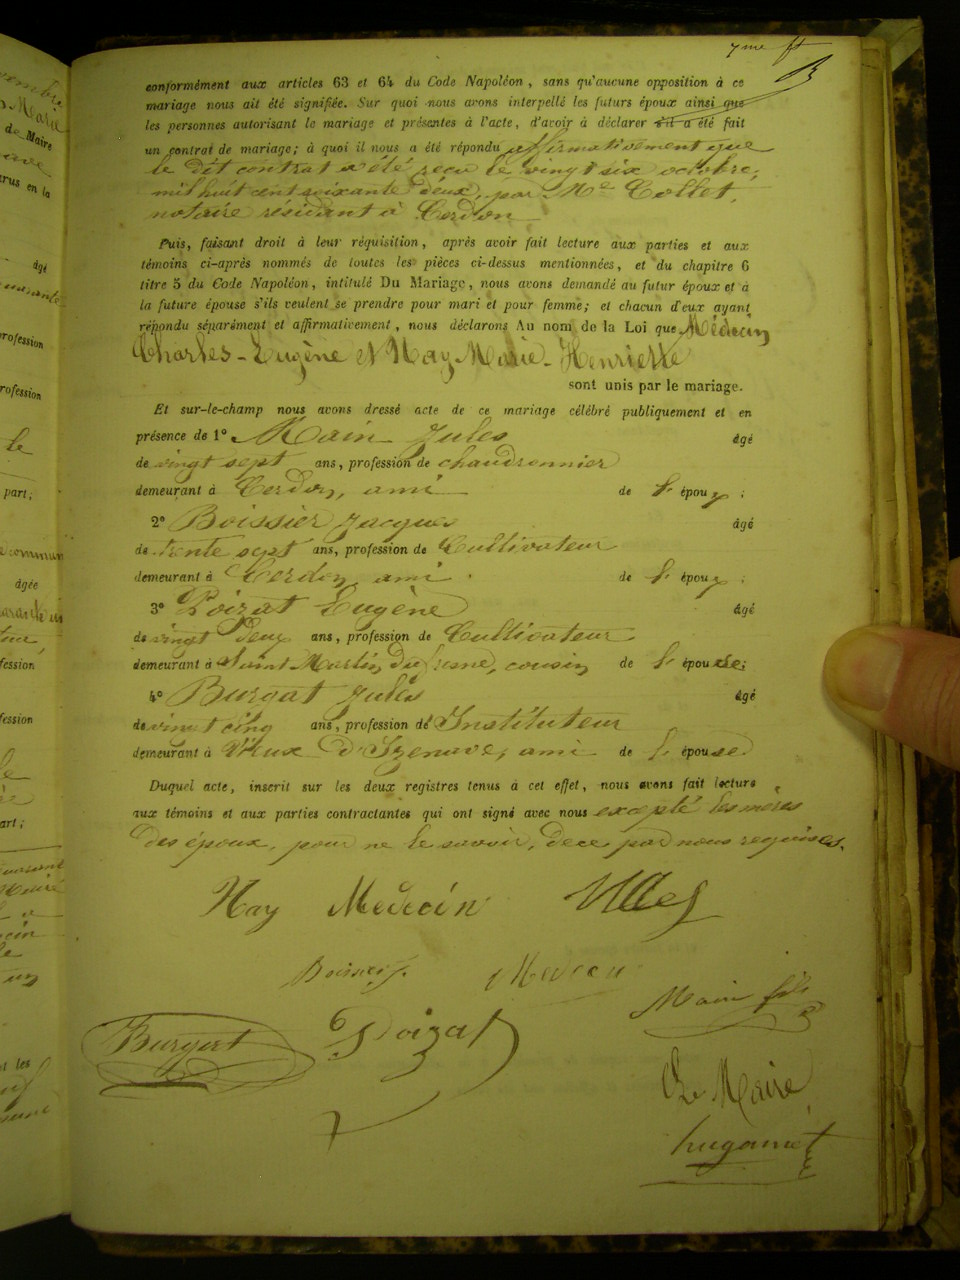 7me ft
conformément aux articles 63 et 64 du Code Napoléon, sans qu'aucune opposition à ce
mariage nous ait été signifiée. Sur quoi nous avons interpellé les futurs époux ainsi que
les personnes autorisant le mariage et présentes à l'acte, d'avoir à déclarer s'il a été fait
un contrat de mariage; à quoi il nous a été répondu affirmativement que
le dit contrat a été reçu le vingt six octobre,
mil huit cent soixante deux, par Me Collet,
notaire résidant à Cerdon
Puis, faisant droit à leur réquisition, après avoir fait lecture aux parties et aux
témoins ci-après nommés de toutes les pièces ci-dessus mentionnées, et du chapitre 6
titre 5 du Code Napoléon, intitulé Du Mariage, nous avons demandé au futur époux et à
la future épouse s'ils veulent se prendre pour mari et pour femme; et chacun d'eux ayant
répondu séparément et affirmativement, nous déclarons Au nom de la Loi que Médecin
Charles-Eugène et Hay Marie-Henriette
sont unis par le mariage.
Et sur-le-champ nous avons dressé acte de ce mariage célébré publiquement et en
présence de 1° Main Jules âgé
de vingt sept ans, profession de chaudronnier
demeurant à Cerdon, ami de l'époux;
2° Boissier Jacques âgé
de trente sept ans, profession de Cultivateur
demeurant à Cerdon, ami de l'époux;
3° Poizat Eugène âgé
de vingt deux ans, profession de Cultivateur
demeurant à Saint Martin du fresne, cousin de l'épouse;
4° Burgat Jules âgé
de vingt cinq ans, profession de Instituteur
demeurant à Vieux d'Izenave, ami de l'épouse
Duquel acte, inscrit sur les deux registres tenus à cet effet, nous avons fait lecture
aux témoins et aux parties contractantes qui ont signé avec nous excepté les mères
des époux, pour ne le savoir, de ce par nous requises.
Hay Medecin
Medecin
Main fils
Burgat Poizat
Le Maire,
hugonnet